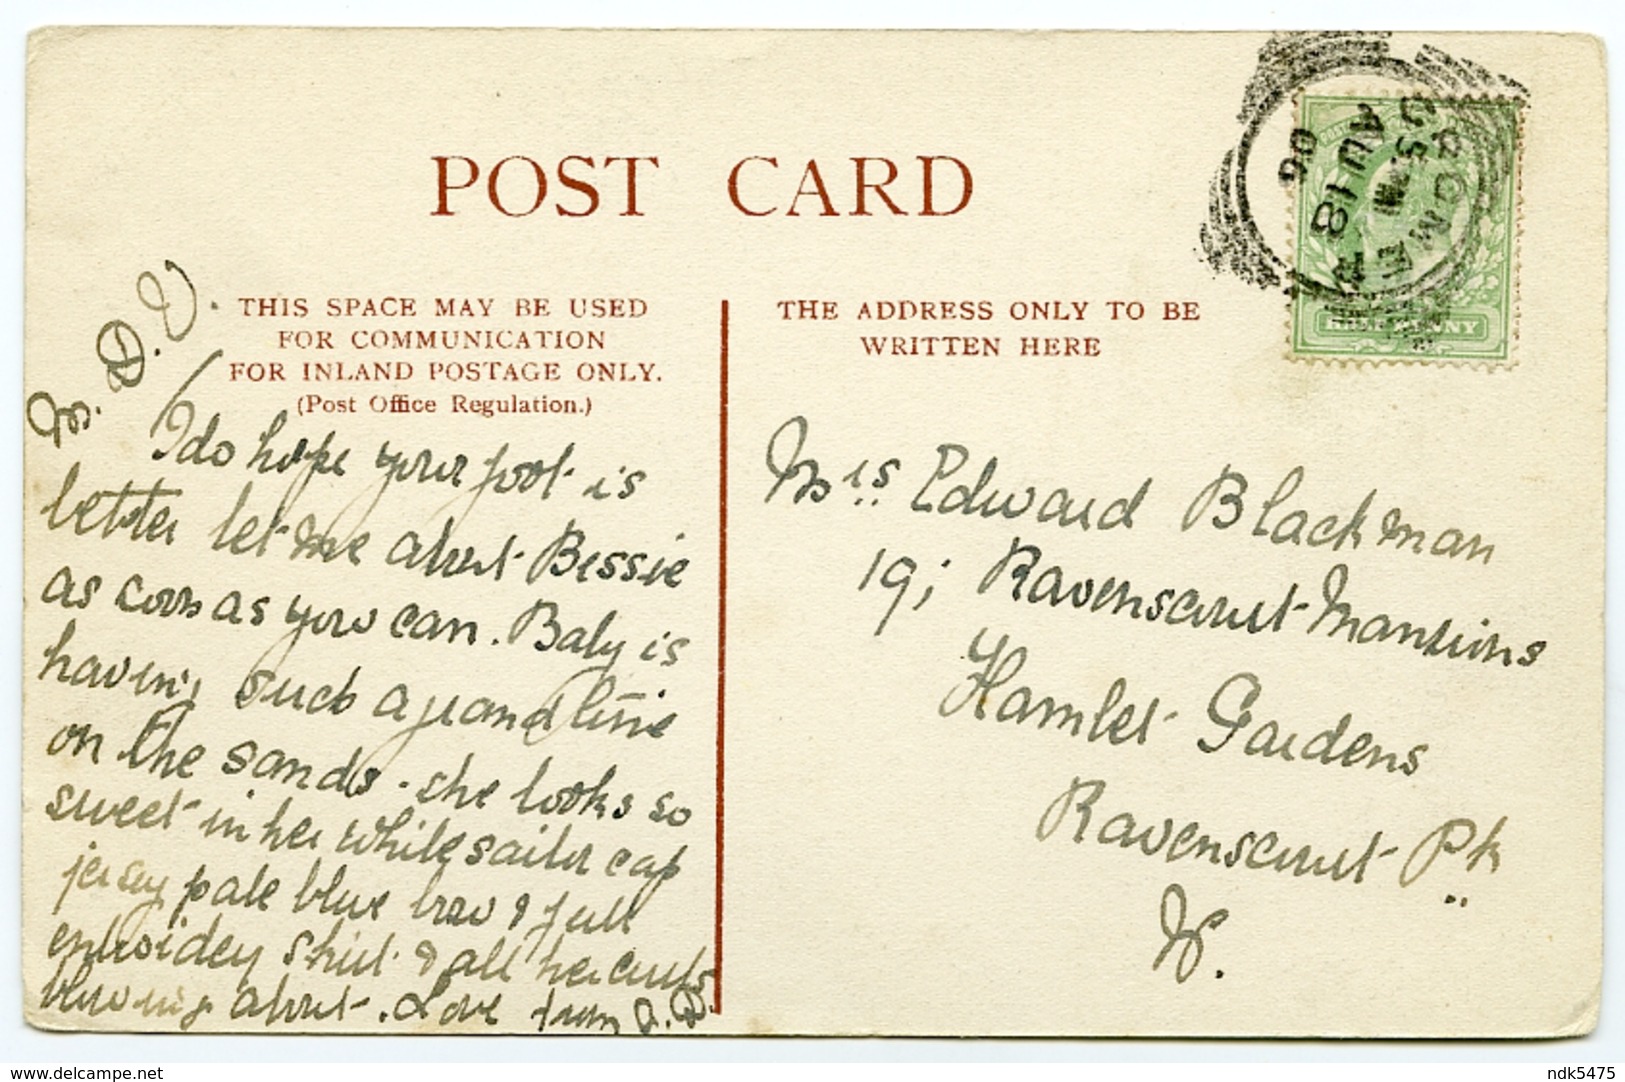 POST CARD
THIS SPACE MAY BE USED
FOR COMMUNICATION
FOR INLAND POSTAGE ONLY.
(Post Office Regulation.)
THE ADDRESS ONLY TO BE
WRITTEN HERE
CROMER
5 PM
AU 18
06
HALFPENNY
I do hope your foot is
better let me about Bessie
as soon as you can. Baby is
having such a grand time
on the sands. she looks so
sweet in her white sailor cap
jersey pale blue bow & full
embroidery skirt & all her curls
blowing about. Love from A. D.
Mrs Edward Blackman
19, Ravenscourt Mansions
Hamlet Gardens
Ravenscourt Pk
W.
delcampe.net
ndk5475